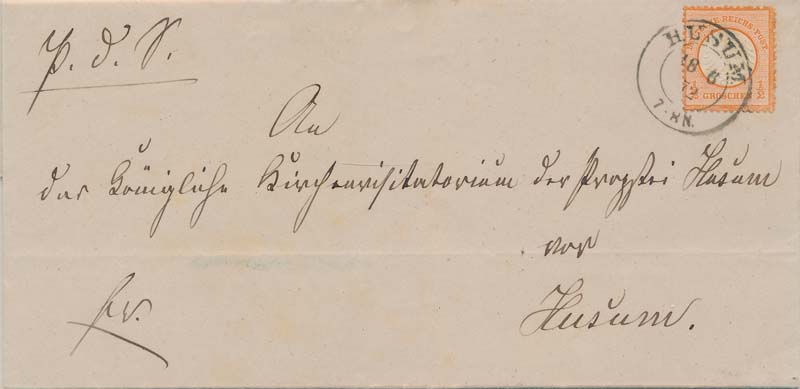 P. d. S.
DEUTSCHE REICHS-POST
½ GROSCHEN ½
HUSUM
18 6
72
7-8N.
An
das Königliche Kirchenvisitatorium der Propstei Husum
vor
Husum.
fr.